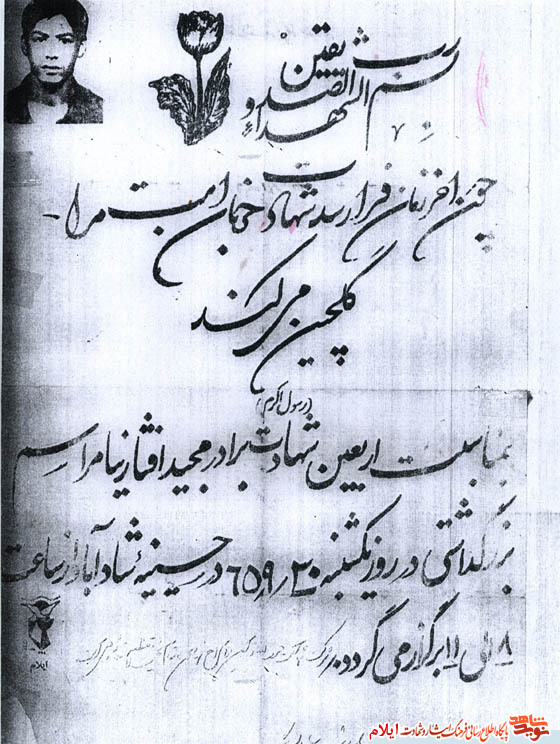 بسم رب الشهداء و الصدیقین
چون آخر زمان فرا رسد شهادت خوبان امت مرا
گلچین می کند
(رسول اکرم)
بمناسبت اربعین شهادت برادر مجید افشار نیا مراسم
بزرگداشتی در روز یکشنبه ۶۵٫۹٫۳۰ در حسینیهٔ شاد آباد از ساعت
۸ الی ۱۱ برگزار می گردد.
ایلام
نوید شاهد
پایگاه اطلاع رسانی فرهنگ ایثار و شهادت ایلام